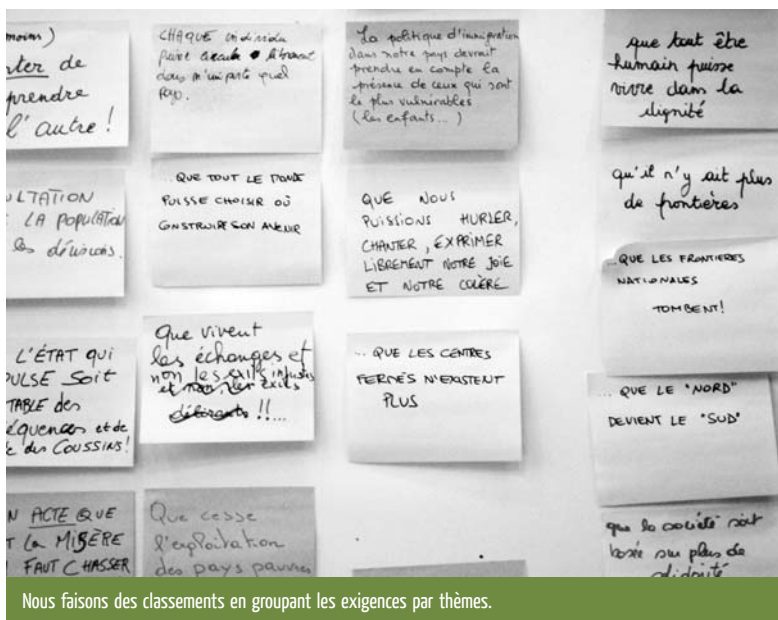 moins)
nter de
prendre
l'autre !
ULTATION
LA POPULATION
les décisions.
L'ÉTAT QUI
PULSE Soit
TABLE des
équences et de
des COUSSINS!
N ACTE QUE
T La MISÈRE
FAUT CHASSER
CHAQUE individu
puisse circuler librement
dans n'importe quel
pays.
...QUE TOUT LE MONDE
PUISSE CHOISIR OÙ
CONSTRUIRE SON AVENIR
Que vivent
les échanges et
non les exils
et non les exils
délirants !!...
Que cesse
l'exploitation
des pays pauvres
La politique d'immigration
dans notre pays devrait
prendre en compte la
présence de ceux qui sont
le plus vulnérables
(les enfants...)
QUE NOUS
PUISSIONS HURLER,
CHANTER, EXPRIMER
LIBREMENT NOTRE JOIE
ET NOTRE COLÈRE
... QUE LES CENTRES
FERMÉS N'EXISTENT
PLUS
que tout être
humain puisse
vivre dans la
dignité
qu'il n'y ait plus
de frontières
...QUE LES FRONTIERES
NATIONALES
TOMBENT!
... QUE LE "NORD"
DEVIENT LE "SUD"
que la société soit
basée sur plus de
Nous faisons des classements en groupant les exigences par thèmes.